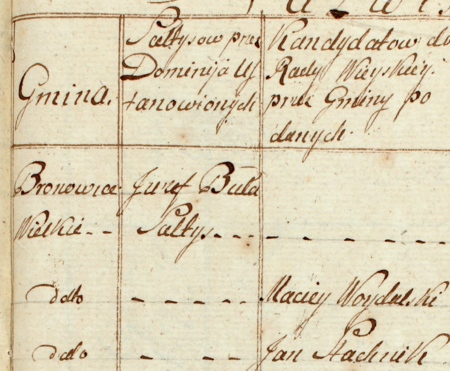 Gmina.
Sołtysow przez
Dominija Us
tanowionych
Kandydatow do
Rady Wieyskiey.
przez Gminy po
danych.
Bronowice
Wielkie - -
Jozef Buła
Sołtys - - - -
- - - - - -
detto
- - - - -
Maciey Woydalski
detto
- - - -
Jan Stachnik